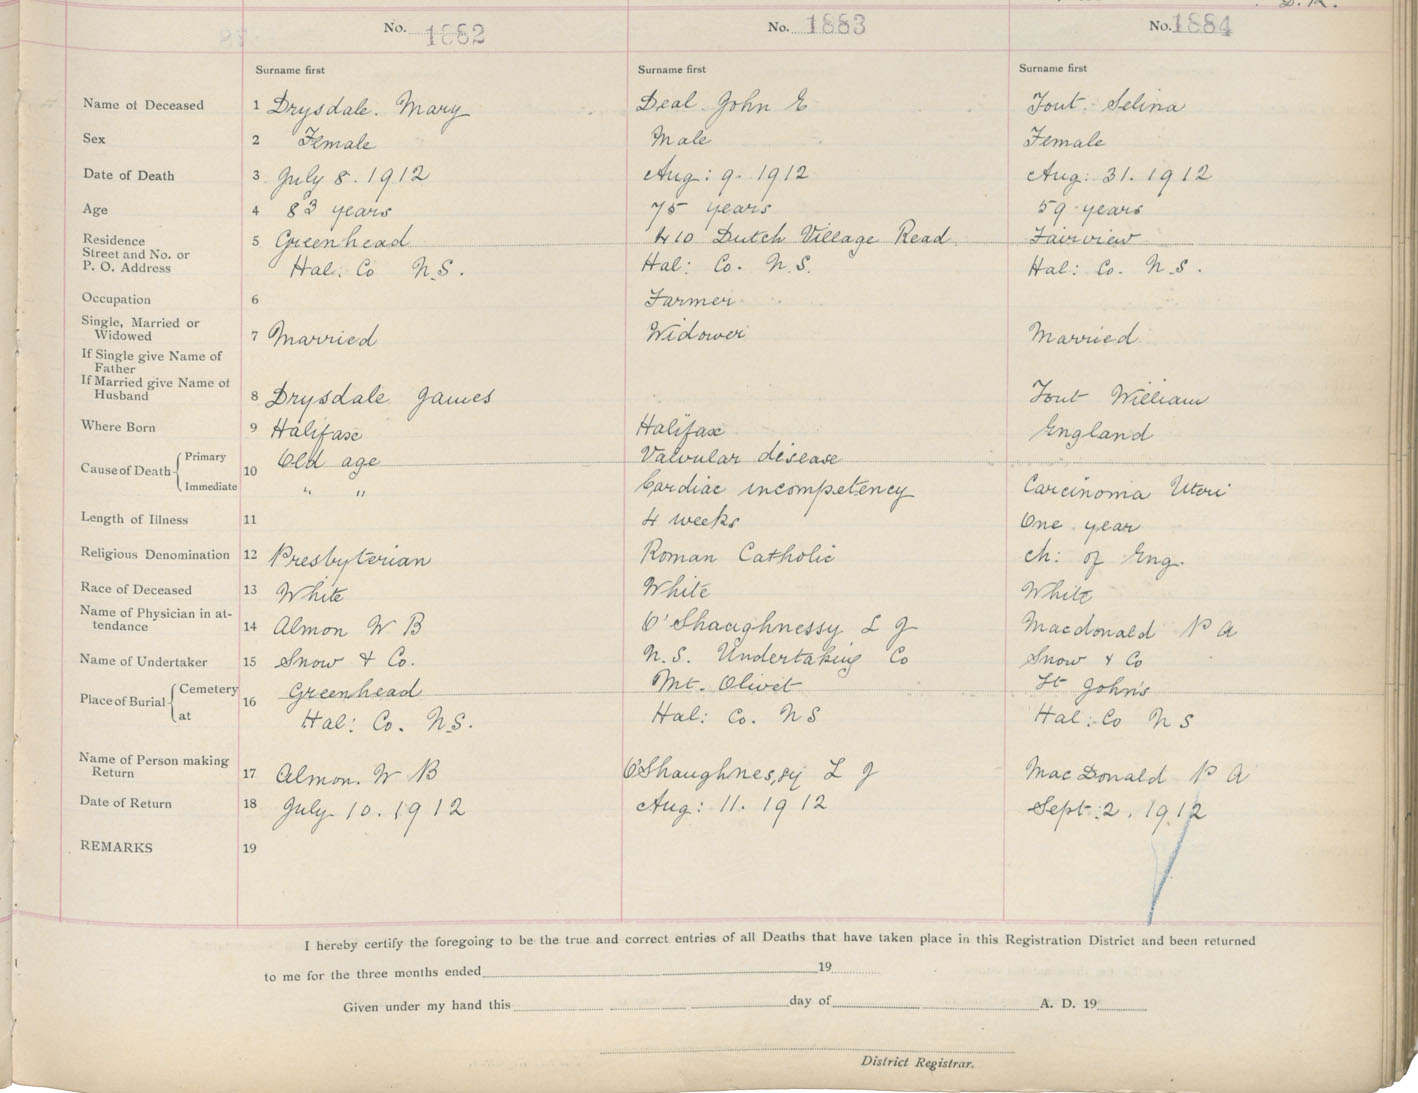 D. R.
No. 1882 No. 1883 No. 1884
Surname first Surname first Surname first
Name of Deceased 1 Drysdale. Mary Deal John E Tout. Selina
Sex 2 Female Male Female
Date of Death 3 July 8. 1912 Aug: 9. 1912 Aug: 31. 1912
Age 4 83 years 75 years 59 years
Residence 5 Greenhead 410 Dutch Village Road Fairview
Street and No. or
P. O. Address Hal: Co N.S. Hal: Co. N.S. Hal: Co. N.S.
Occupation 6 Farmer
Single, Married or
Widowed 7 Married Widower Married
If Single give Name of
Father
If Married give Name of
Husband 8 Drysdale James Tout William
Where Born 9 Halifax Halifax England
Cause of Death Primary 10 Old age Valvular disease
Immediate " " Cardiac incompetency Carcinoma Uteri
Length of Illness 11 4 weeks One year
Religious Denomination 12 Presbyterian Roman Catholic Ch: of Eng.
Race of Deceased 13 White White White
Name of Physician in at-
tendance 14 Almon W B O'Shaughnessy L J Macdonald P A
Name of Undertaker 15 Snow & Co. N.S. Undertaking Co Snow & Co
Place of Burial Cemetery 16 Greenhead Mt. Olivet St John's
at Hal: Co. N.S. Hal: Co. N S Hal: Co N S
Name of Person making
Return 17 Almon. W B O'Shaughnessy L J MacDonald P A
Date of Return 18 July 10. 1912 Aug: 11. 1912 Sept: 2. 1912
REMARKS 19
I hereby certify the foregoing to be the true and correct entries of all Deaths that have taken place in this Registration District and been returned
to me for the three months ended 19
Given under my hand this day of A. D. 19
District Registrar.